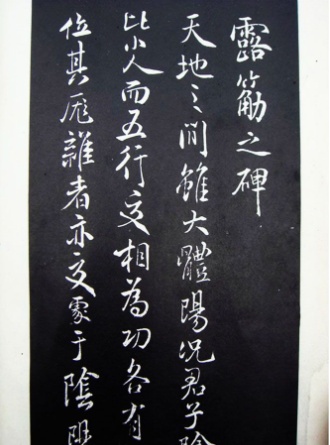 露筋之碑
天地之間雖大體陽況君子陰
比小人而五行交相為功各有
位其厖雜者亦交于陰陽